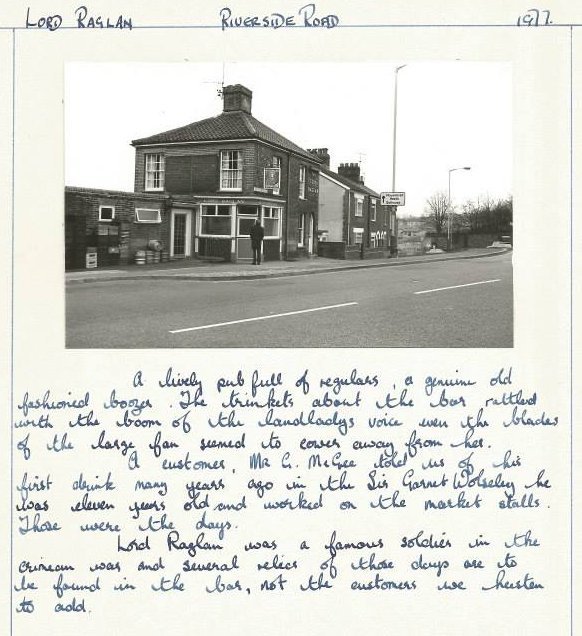 LORD RAGLAN RIVERSIDE ROAD 1977.
A lively pub full of regulars, a genuine old
fashioned boozer. The trinkets about the bar rattled
with the boom of the landladys voice even the blades
of the large fan seemed to cower away from her.
A customer, MR G. McGee told us of his
first drink many years ago in the Sir Garnet Wolseley he
was eleven years old and worked on the market stalls.
Those were the days.
Lord Raglan was a famous soldier in the
crimean war and several relics of those days are to
be found in the bar, not the customers we hasten
to add.